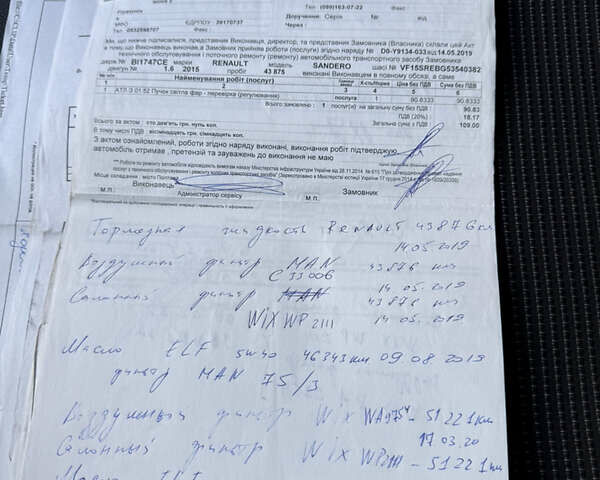 Тел (099)163-07-22
ЄДРПОУ : 39170737
Доручення: Серія №
Через :
Тел 0532508707
МФО
Ми, що нижче підписалися, представник Виконавця, директор, та представник Замовника (Власника) склали цей Акт
в тому, що Виконавець виконав, а Замовник прийняв роботи (послуги) згідно наряду № D0-Y9134-033 від 14.05.2019
технічного обслуговування і поточного ремонту (ремонту) автомобільного транспортного засобу Замовника
держ № BI1747CE марки RENAULT модель SANDERO шасі № VF15SREBG53540382
двигун № 1.6 2015 пробіг 43 875 виконані Виконавцем в повному обсязі, а саме
№ Найменування робіт (послуг) Ціна без ПДВ Сума без ПДВ
1 2 3 4 5 6
1 АТЛ Э 01.52 Пучок світла фар - перевірка (регулювання) послуга 1 90.8333 90.8333
Всього замовлено : 1 послуга(и) на загальну суму без ПДВ: 90.83
ПДВ (20%) : 18.17
Загальна сума з ПДВ : 109.00
Всього за актом : сто дев'ять грн. нуль коп.
В тому числі ПДВ : вісімнадцять грн. сімнадцять коп.
З актом ознайомлений, роботи згідно наряду виконані, виконання робіт підтверджую
автомобіль отримав , претензій та зауважень до виконання не маю
Місце складання : місто Полтава
Виконавець Замовник
М.П. Адміністратор сервісу М.П.
Тормозная жидкость RENAULT 43876 км
14.05.2019
Воздушный фильтр MAN 43876 км
C 33006 14.05.2019
Салонный фильтр MAN 43876 км
WIX WP 2111 14.05.2019
Масло ELF 5W40 46343 км 09 08 2019
фильтр MAN 75/3
Воздушный фильтр WIX WA9754 - 51221 км
17.03.20
Салонный фильтр WIX WP2111 - 51221 км
Масло ELF